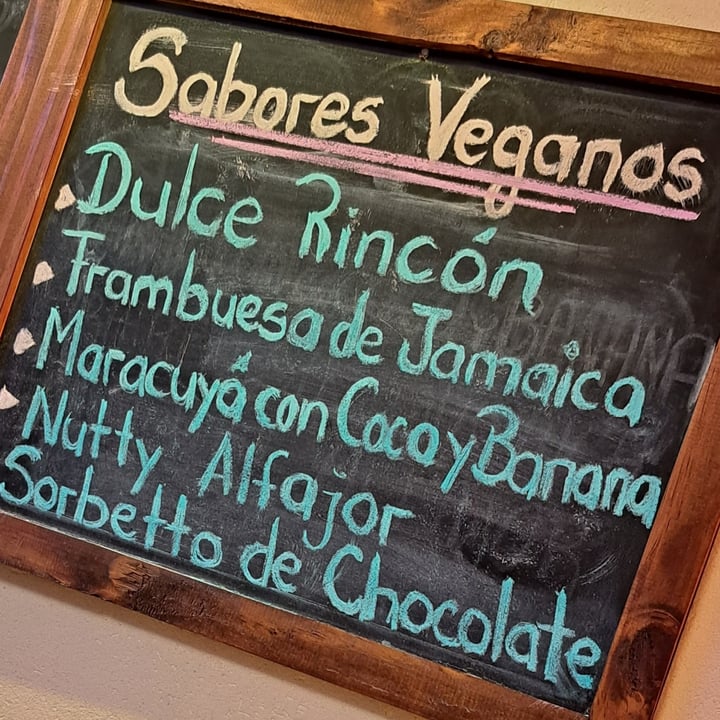 Sabores Veganos
Dulce Rincón
Frambuesa de Jamaica
Maracuyá con Coco y Banana
Nutty Alfajor
Sorbetto de Chocolate
BANANA